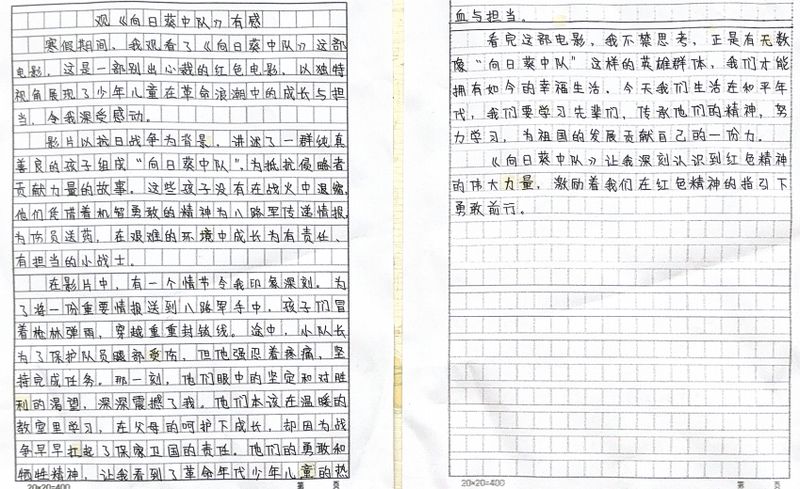 观《向日葵中队》有感
寒假期间，我观看了《向日葵中队》这部
电影，这是一部别出心裁的红色电影，以独特
视角展现了少年儿童在革命浪潮中的成长与担
当，令我深受感动。
影片以抗日战争为背景，讲述了一群纯真
善良的孩子组成“向日葵中队”，为抵抗侵略者
贡献力量的故事。这些孩子没有在战火中退缩，
他们凭借着机智勇敢的精神为八路军传递情报，
为伤员送药，在艰难的环境中成长为有责任、
有担当的小战士。
在影片中，有一个情节令我印象深刻。为
了将一份重要情报送到八路军手中，孩子们冒
着枪林弹雨，穿越重重封锁线。途中，小队长
为了保护队员腿部受伤，但他强忍着疼痛，坚
持完成任务。那一刻，他们眼中的坚定和对胜
利的渴望，深深震撼了我。他们本该在温暖的
教室里学习，在父母的呵护下成长，却因为战
争早早扛起了保家卫国的责任。他们的勇敢和
牺牲精神，让我看到了革命年代少年儿童的热
20×20=400
第 页
血与担当。
看完这部电影，我不禁思考，正是有无数
像“向日葵中队”这样的英雄群体，我们才能
拥有如今的幸福生活。今天我们生活在和平年
代，我们要学习先辈们，传承他们的精神，努
力学习，为祖国的发展贡献自己的一份力。
《向日葵中队》让我深刻认识到红色精神
的伟大力量，激励着我们在红色精神的指引下
勇敢前行。
20×20=400
第 页